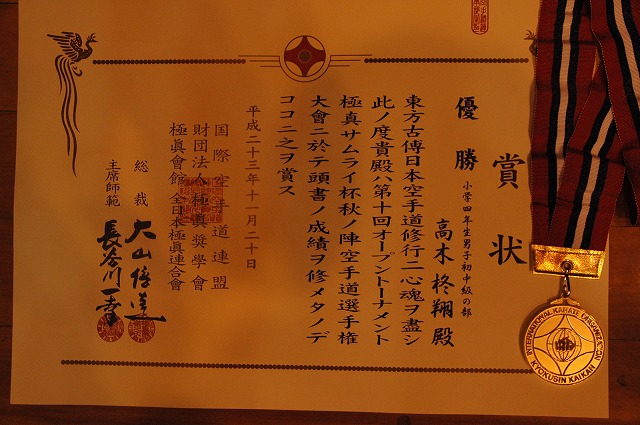 賞状
優勝 小学四年生男子初中級の部
高木柊翔殿
東方古傳日本空手道修行ニ心魂ヲ盡シ
此ノ度貴殿ハ第十回オープントーナメント
極真サムライ杯秋ノ陣空手道選手権
大會ニ於テ頭書ノ成績ヲ修メタノデ
ココニ之ヲ賞ス
平成二十三年十一月二十日
国際空手道連盟
財団法人極真奨學會
極真會館 全日本極真連合會
総裁 大山倍達
主席師範 長谷川一幸
INTERNATIONAL KARATE ORGANIZATION
KYOKUSIN KAIKAN